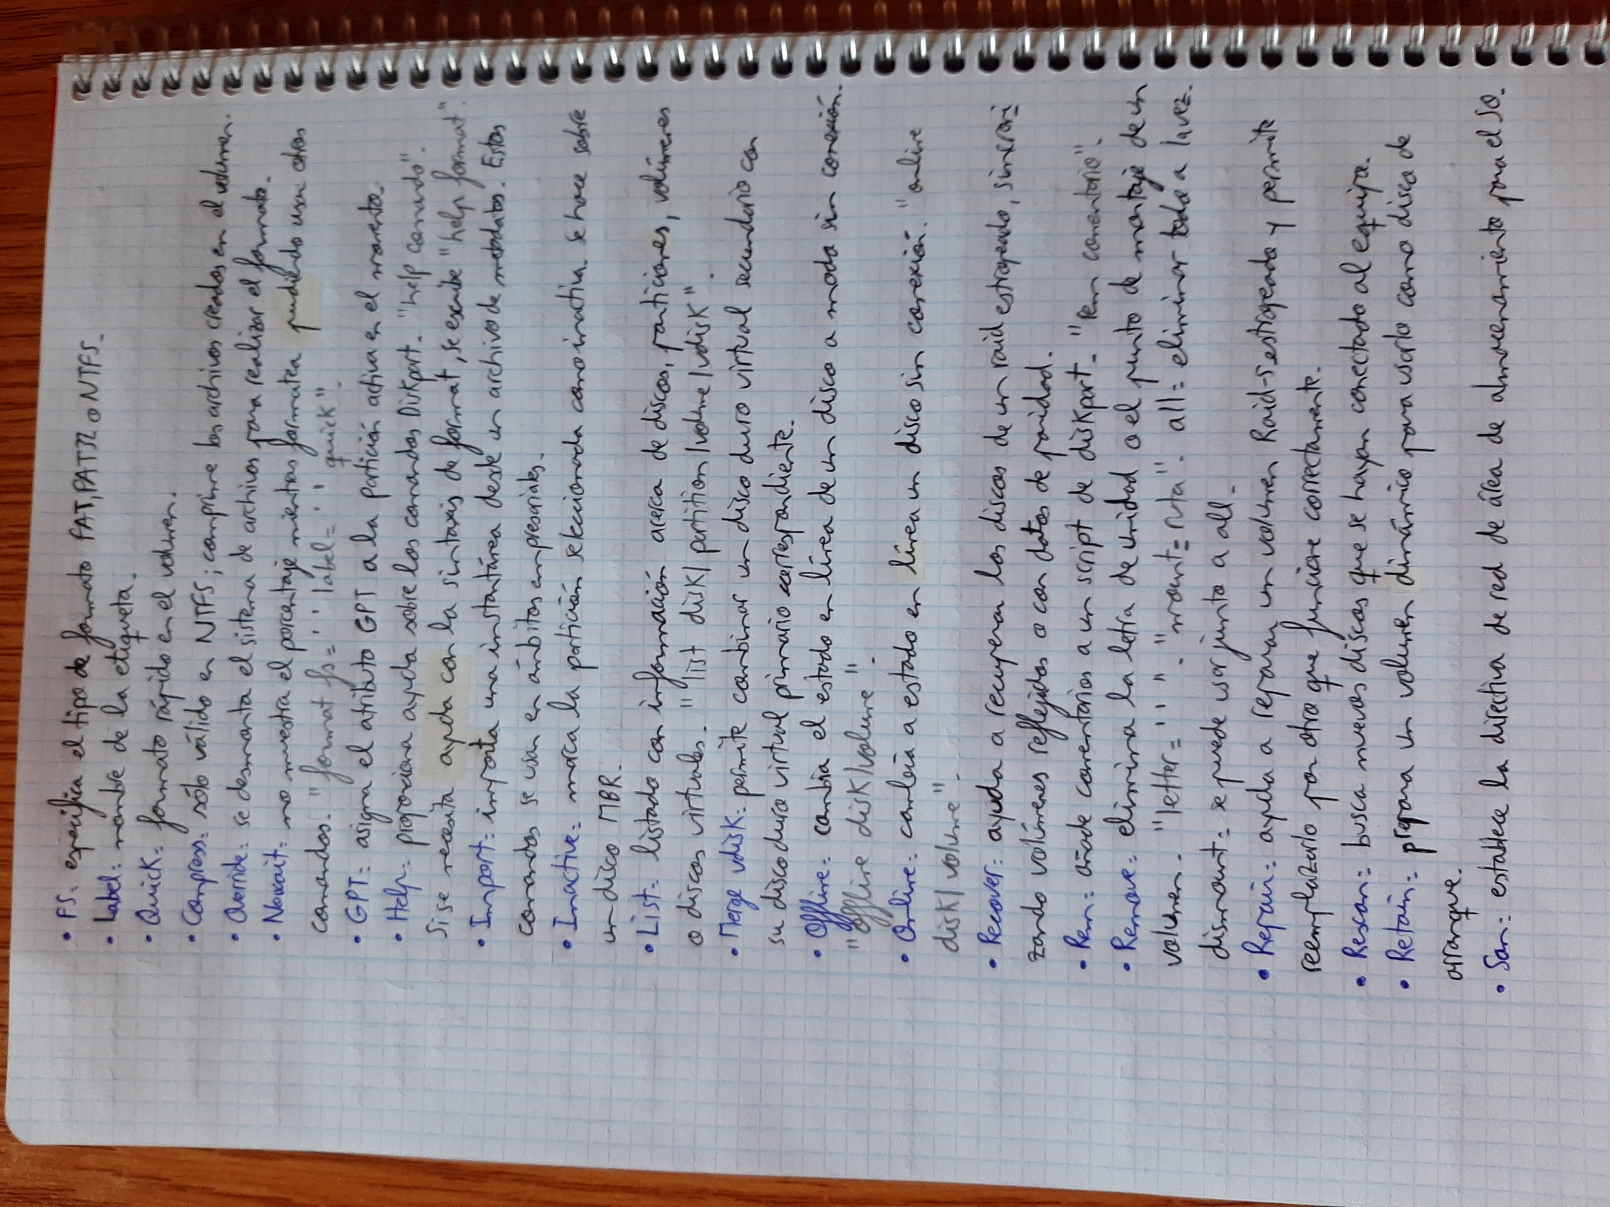 • FS: especifica el tipo de formato FAT, FAT32 o NTFS.
• Label: nombre de la etiqueta.
• Quick: formato rápido en el volumen.
• Compress: sólo válido en NTFS; comprime los archivos creados en el volumen.
• Override: se desmonta el sistema de archivos para realizar el formato.
• Nowait: no muestra el porcentaje mientras formatea pudiendo usar otros
comandos. "format fs= ' ' label= ' ' quick".
• GPT: asigna el atributo GPT a la partición activa en el momento.
• Help: proporciona ayuda sobre los comandos Diskpart. "help comando".
Si se necesita ayuda con la sintaxis de format, se escribe "help format".
• Import: importa una instantánea desde un archivo de metadatos. Estos
comandos se usan en ámbitos empresariales.
• Inactive: marca la partición seleccionada como inactiva. se hace sobre
un disco MBR.
• List: listado con información acerca de discos, particiones, volúmenes
o discos virtuales. "list disk/partition/volume/vdisk".
• Merge vdisk: permite combinar un disco duro virtual secundario con
su disco duro virtual primario correspondiente.
• Offline: cambia el estado en línea de un disco a modo sin conexión.
"Offline disk/volume".
• Online: cambia a estado en línea un disco sin conexión. "online
disk/volume".
• Recover: ayuda a recuperar los discos de un raid estropeado, sincroni
zando volúmenes reflejados o con datos de paridad.
• Rem: añade comentarios a un script de diskpart. "rem comentario".
• Remove: elimina la letra de unidad o el punto de montaje de un
volumen. "letter= ' ' ". "mount=ruta". all: eliminar todo a la vez.
dismount: se puede usar junto a all.
• Repair: ayuda a reparar un volumen Raid-5 estropeado y permite
reemplazarlo por otro que funcione correctamente.
• Rescan: busca nuevos discos que se hayan conectado al equipo.
• Retain: prepara un volumen dinámico para usarlo como disco de
arranque.
• San: establece la directiva de red de área de almacenamiento para el SO.